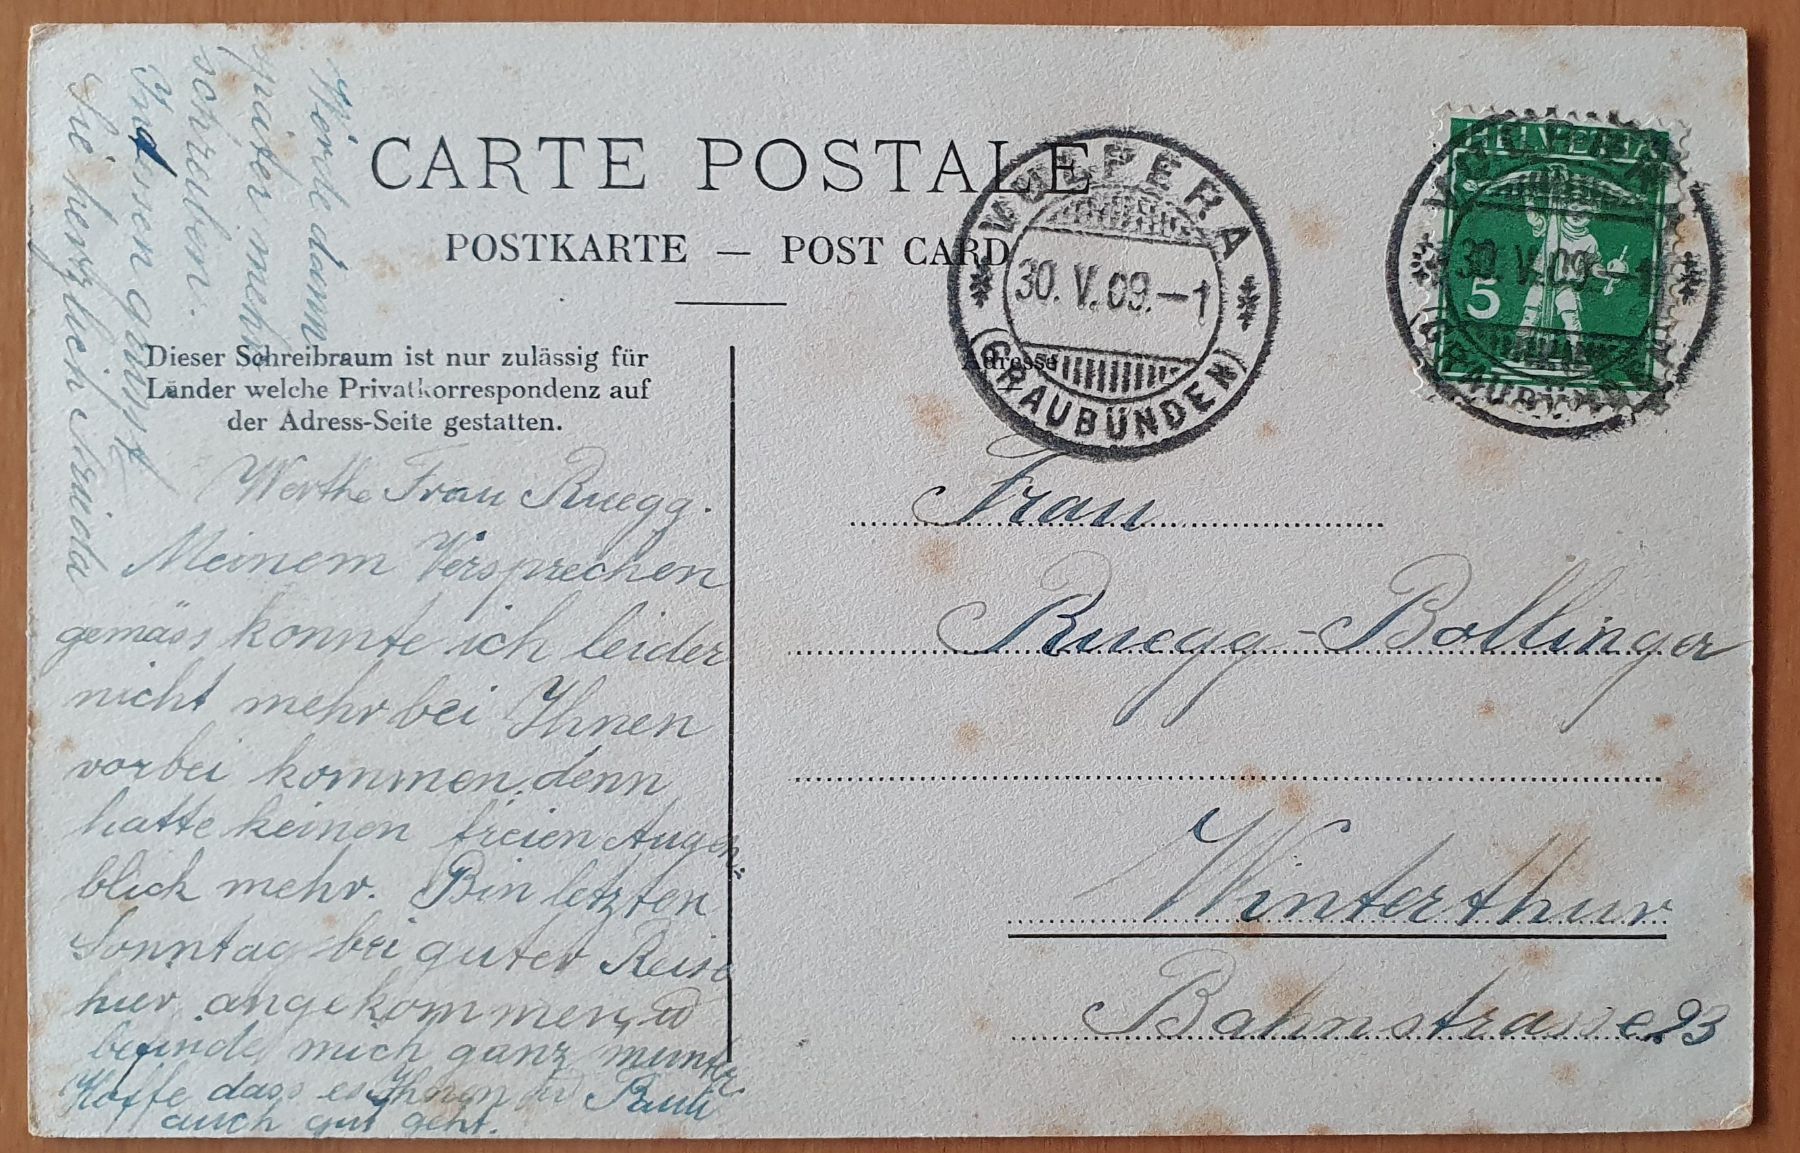 CARTE POSTALE
POSTKARTE — POST CARD
Dieser Schreibraum ist nur zulässig für
Länder welche Privatkorrespondenz auf
der Adress-Seite gestatten.
Adresse
VULPERA
30. V. 09. – 1
(GRAUBÜNDEN)
HELVETIA
5
VULPERA
30. V. 09. – 1
(GRAUBÜNDEN)
Werthe Frau Ruegg.
Meinem Versprechen
gemäss konnte ich leider
nicht mehr bei Ihnen
vorbei kommen, denn
hatte keinen freien Augen
blick mehr. Bin letzten
Sonntag bei guter Reise
hier angekommen, u
befinde mich ganz munter
Hoffe dass es Ihnen u Pauli
auch gut geht.
Werde dann
später mehr
schreiben.
Indessen grüsst
Sie herzlich Frieda
Frau
Ruegg-Bollinger
Winterthur
Bahnstrasse 23